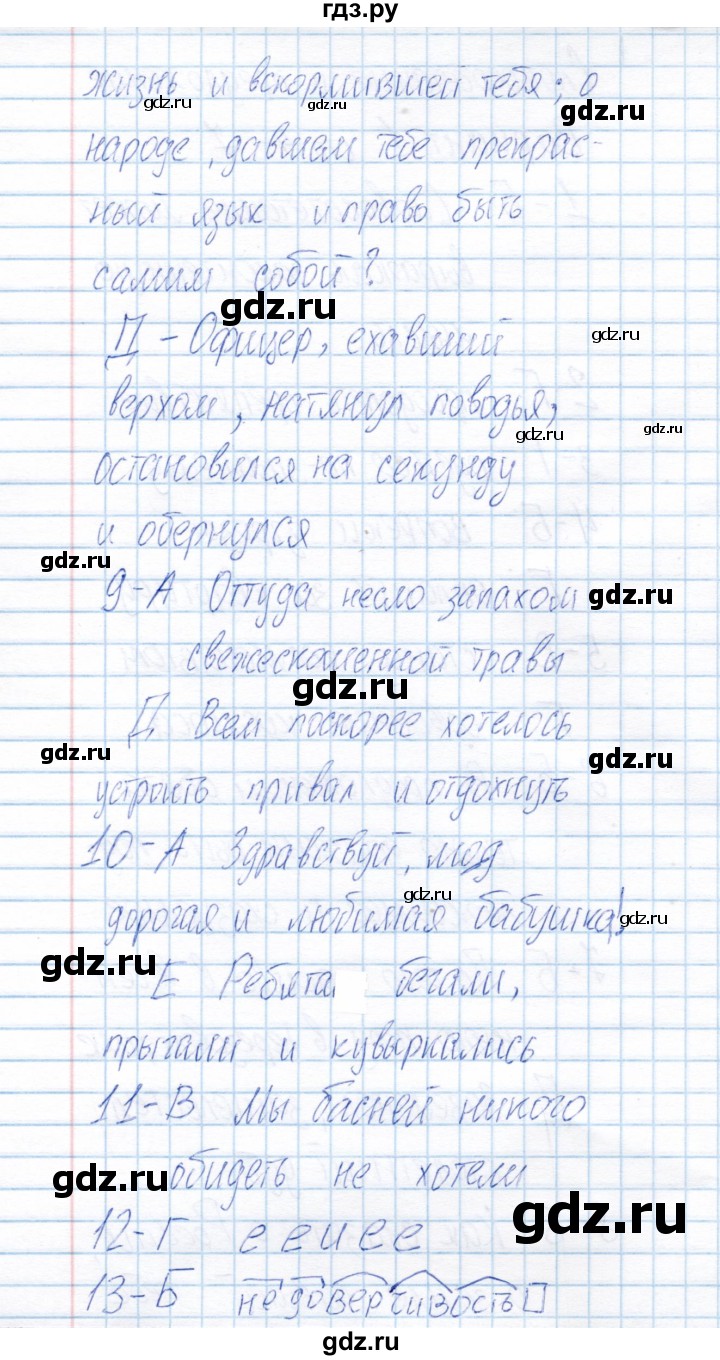 гдз.ру
жизнь и вскормившей тебя; о
gdz.ru
gdz.ru
народе, давшем тебе прекрас-
ный язык и право быть
самим собой?
gdz.ru
gdz.ru
Д - Офицер, ехавший
верхом, натянул поводья,
gdz.ru
gdz.ru
остановился на секунду
и обернулся
gdz.ru
9-А Оттуда несло запахом
gdz.ru
свежескошенной травы
gdz.ru
Д Всем поскорее хотелось
gdz.ru
gdz.ru
устроить привал и отдохнуть
10-А Здравствуй, моя
gdz.ru
дорогая и любимая бабушка!
gdz.ru
gdz.ru
Е Ребята бегали,
прыгали и кувыркались
11-В Мы басней никого
обидеть не хотели
gdz.ru
gdz.ru
12-Г е е и е е
13-Б недоверчивость
gdz.ru